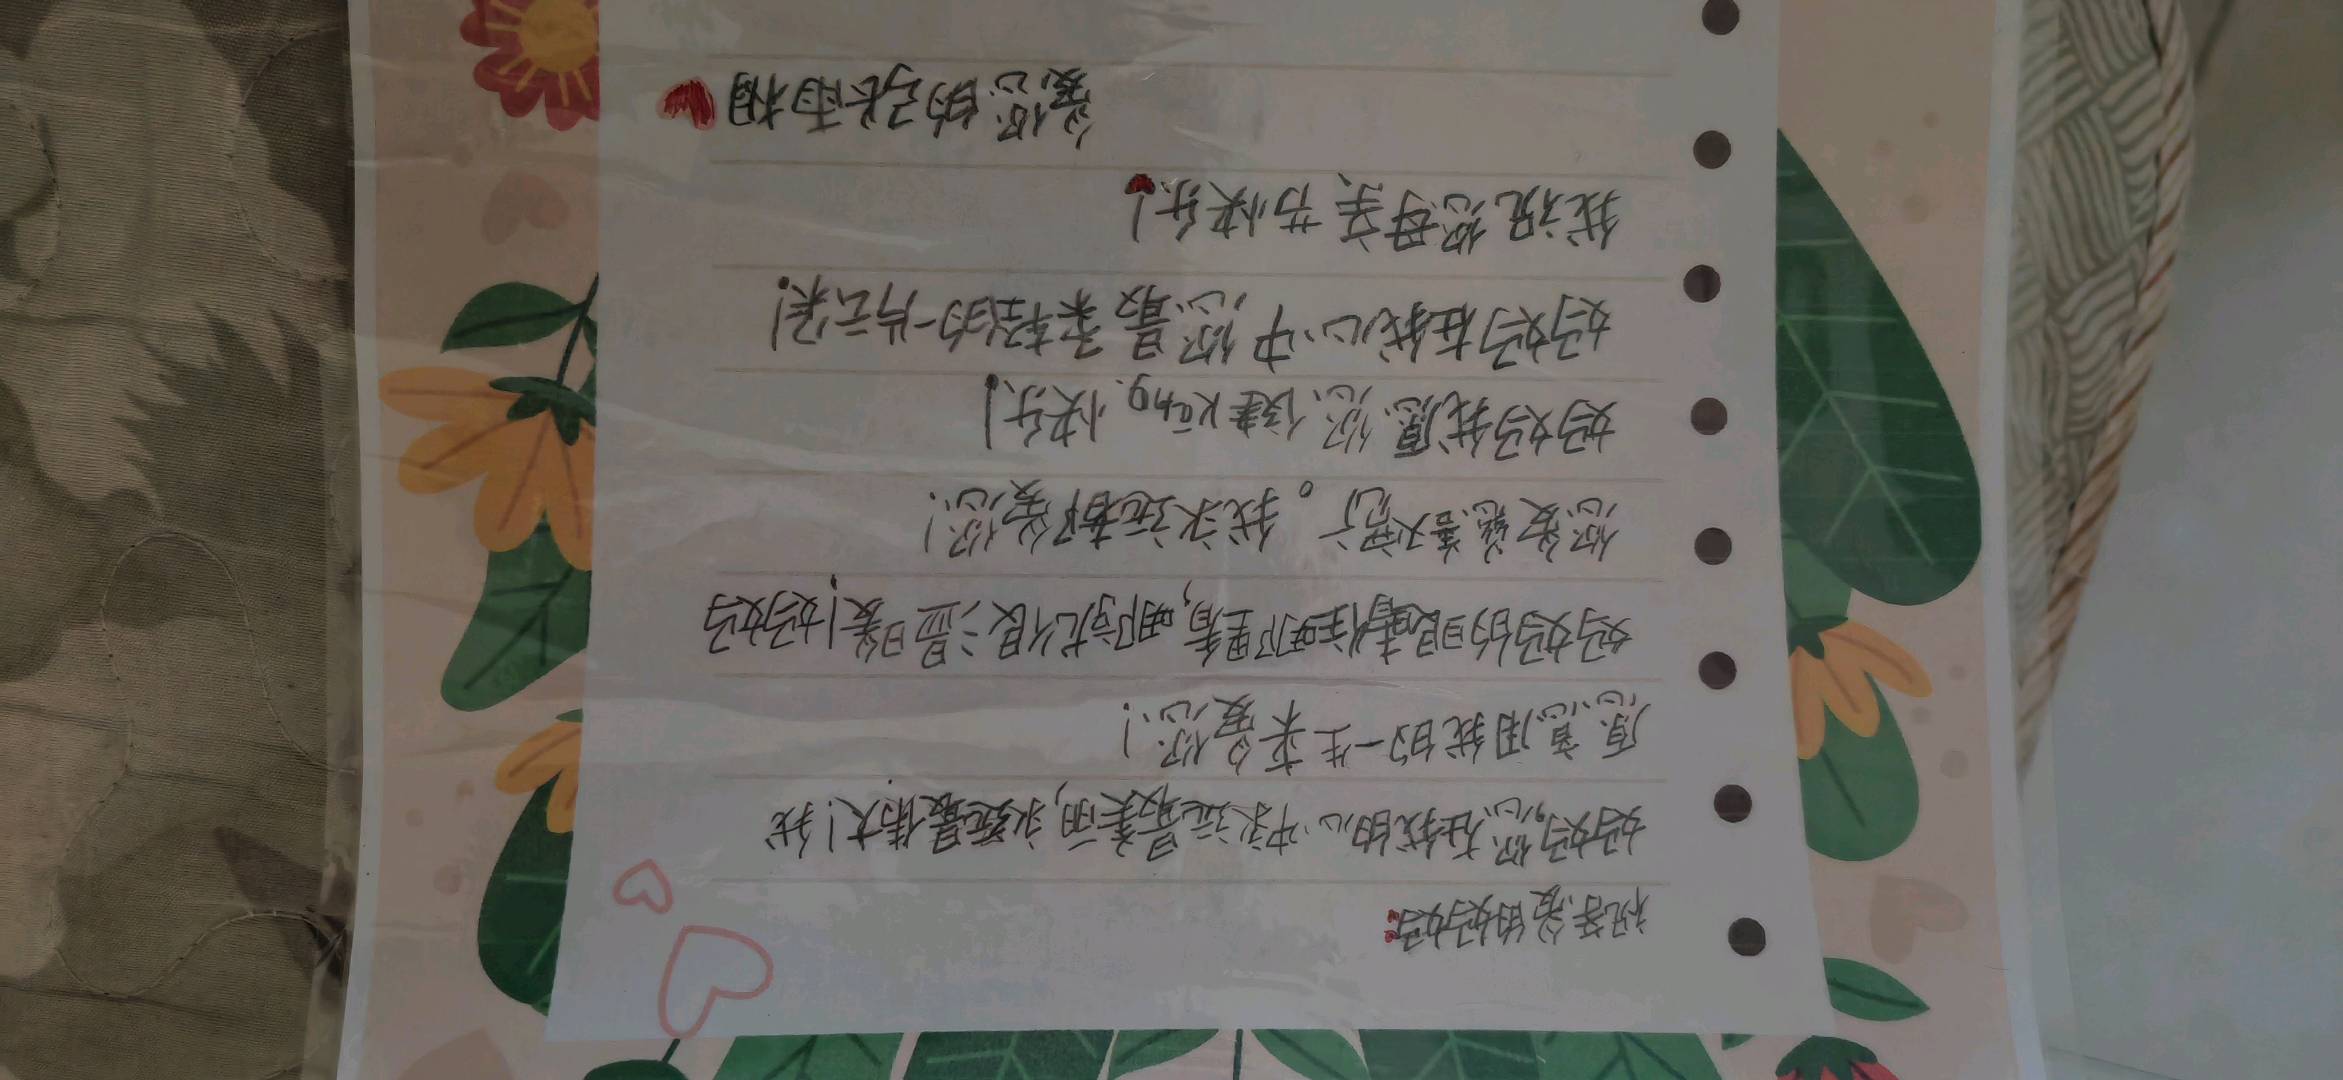 祝亲爱的妈妈:
妈妈,您在我的心中永远最美丽,永远最伟大!我
愿意用我的一生来爱您!
妈妈的眼睛往哪里看,哪就很温暖!妈妈
您 我永远都爱您!
妈妈我愿您健kāng、快乐!
妈妈在我心中您最柔轻的一片云朵!
我祝您母亲节快乐!
爱您的张雨相